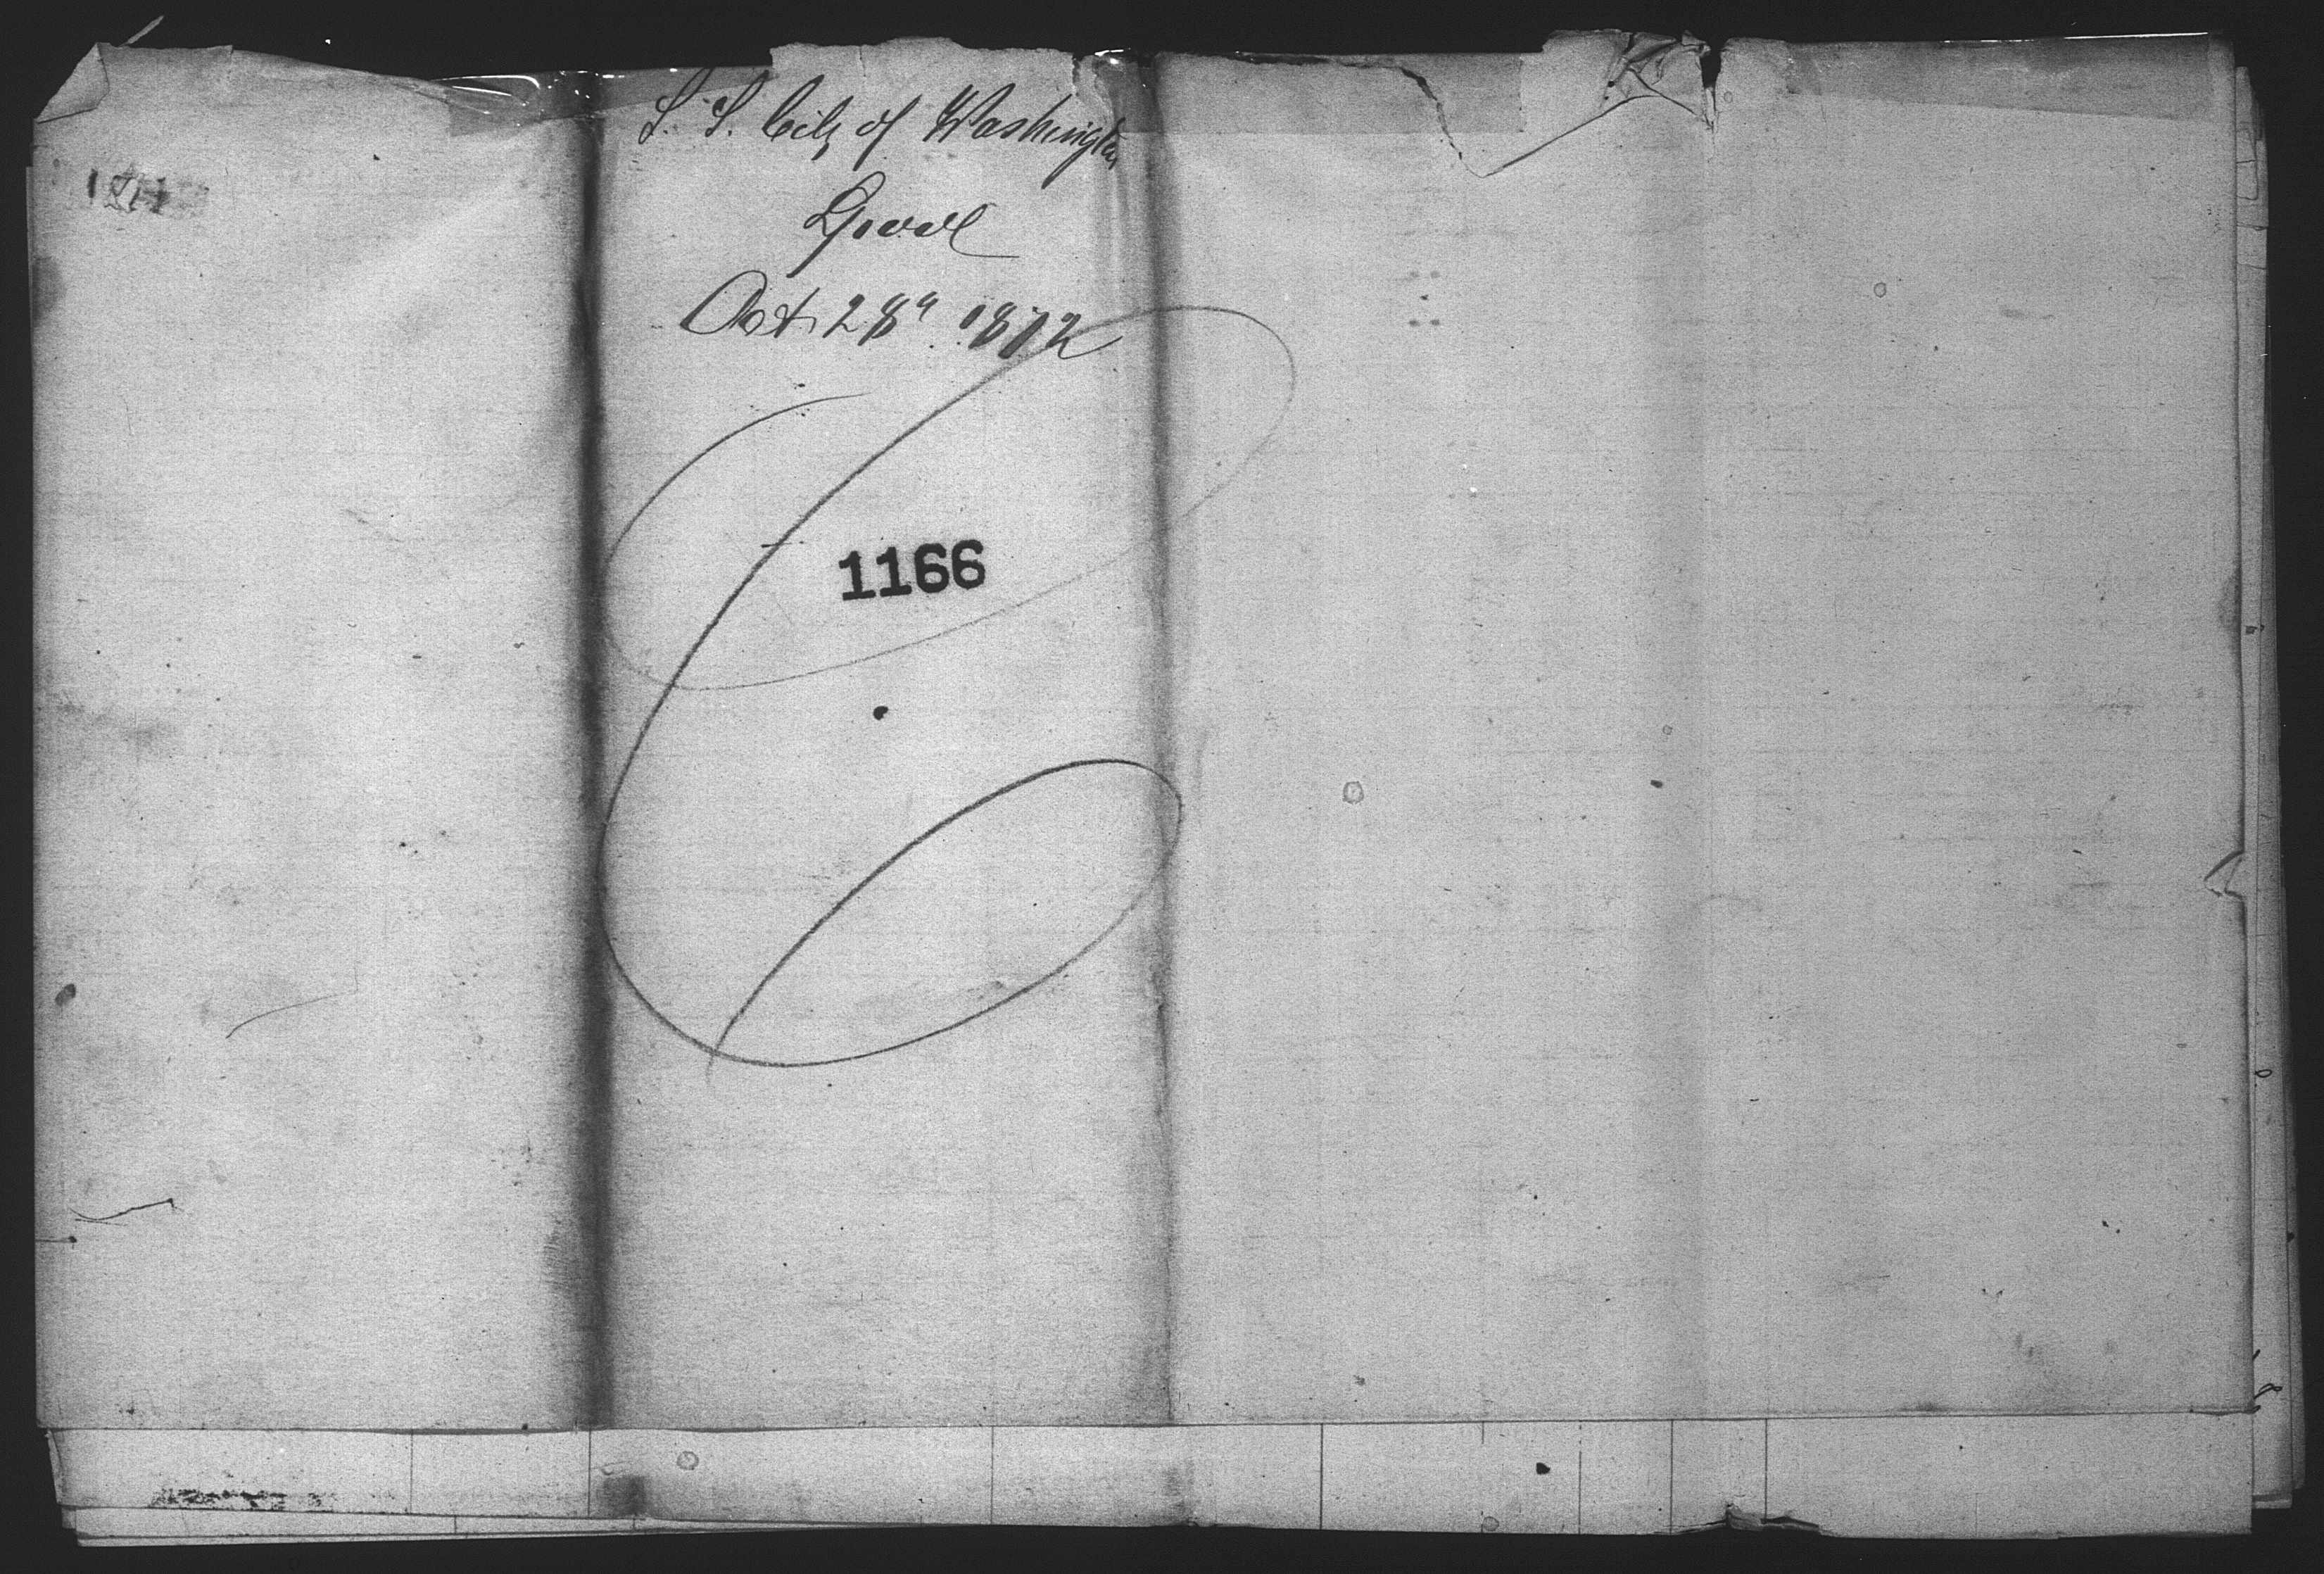 S. S. City of Washington
Lpool
Oct 28" 1872
1166